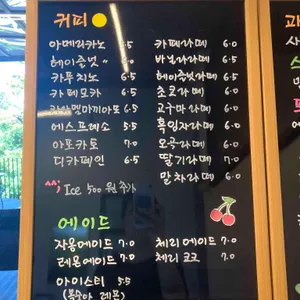 커피
아메리카노 5.5
헤이즐넛 〃 6.0
카푸치노 6.5
카페모카 6.5
카라멜마끼아또 6.5
에스프레소 5.5
아포카토 7.0
디카페인 6.5
카페라떼 6.0
바닐라라떼 6.0
헤이즐넛라떼 6.5
초코라떼 6.0
고구마라떼 6.0
흑임자라떼 6.0
오곡라떼 6.0
딸기라떼 7.0
말차라떼 6.0
^^; Ice 500 원 추가
에이드
자몽에이드 7.0
레몬에이드 7.0
아이스티 5.5
(복숭아 레몬)
체리에이드 7.0
체리코크 7.0